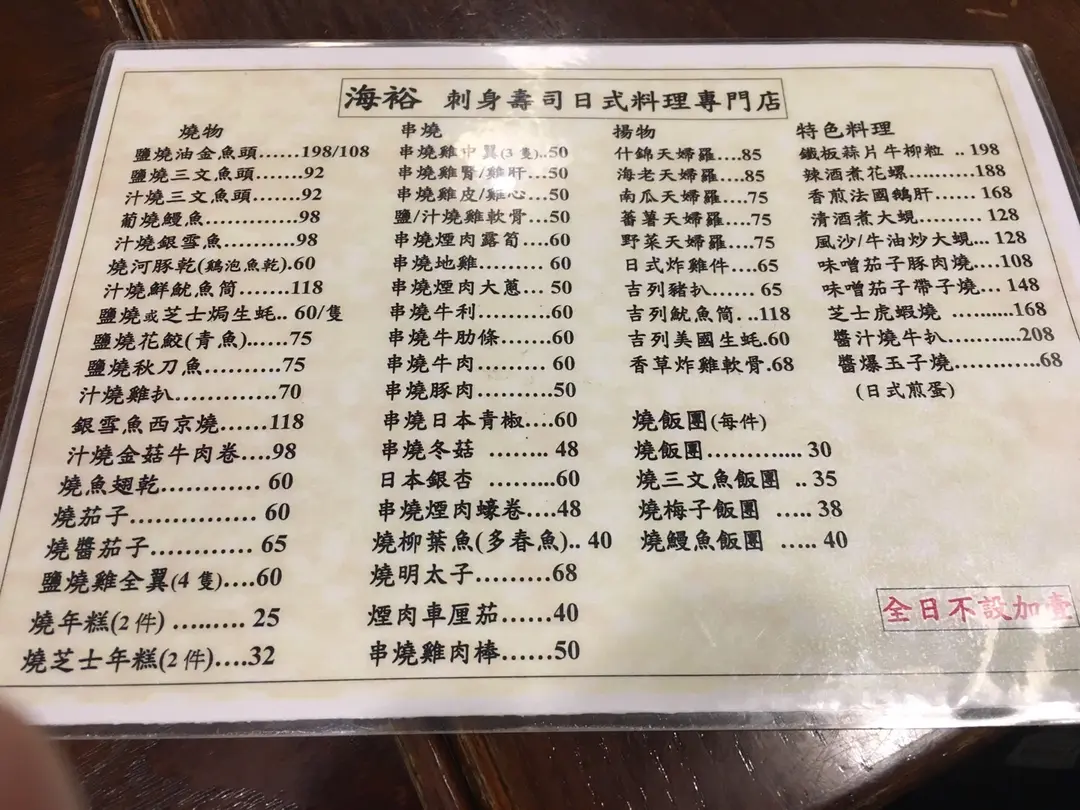 海裕 刺身壽司日式料理專門店
燒物
鹽燒油金魚頭......198/108
鹽燒三文魚頭.......92
汁燒三文魚頭.......92
葡燒鰻魚.............98
汁燒銀雪魚..........98
燒河豚乾(鷄泡魚乾).60
汁燒鮮魷魚筒.......118
鹽燒或芝士焗生蚝.. 60/隻
鹽燒花鮫(青魚)......75
鹽燒秋刀魚..........75
汁燒雞扒.............70
銀雪魚西京燒......118
汁燒金菇牛肉卷....98
燒魚翅乾............ 60
燒茄子............... 60
燒醬茄子............ 65
鹽燒雞全翼(4 隻)....60
燒年糕(2 件) .......... 25
燒芝士年糕(2 件)....32
串燒
串燒雞中翼(3 隻)..50
串燒雞腎/雞肝....50
串燒雞皮/雞心....50
鹽/汁燒雞軟骨....50
串燒煙肉露筍....60
串燒地雞......... 60
串燒煙肉大蔥... 50
串燒牛利..........60
串燒牛肋條.......60
串燒牛肉......... 60
串燒豚肉..........50
串燒日本青椒....60
串燒冬菇 ........ 48
日本銀杏 .........60
串燒煙肉蠔卷....48
燒柳葉魚(多春魚).. 40
燒明太子.........68
煙肉車厘茄......40
串燒雞肉棒......50
揚物
什錦天婦羅....85
海老天婦羅....85
南瓜天婦羅....75
蕃薯天婦羅....75
野菜天婦羅....75
日式炸雞件....65
吉列豬扒...... 65
吉列魷魚筒. ..118
吉列美國生蚝.60
香草炸雞軟骨.68
燒飯團(每件)
燒飯團............ 30
燒三文魚飯團 .. 35
燒梅子飯團 ..... 38
燒鰻魚飯團 ..... 40
特色料理
鐵板蒜片牛柳粒 .. 198
辣酒煮花螺.........188
香煎法國鵝肝...... 168
清酒煮大蜆.......... 128
風沙/牛油炒大蜆... 128
味噌茄子豚肉燒....108
味噌茄子帶子燒... 148
芝士虎蝦燒 ..........168
醬汁燒牛扒...........208
醬爆玉子燒............68
(日式煎蛋)
全日不設加壹